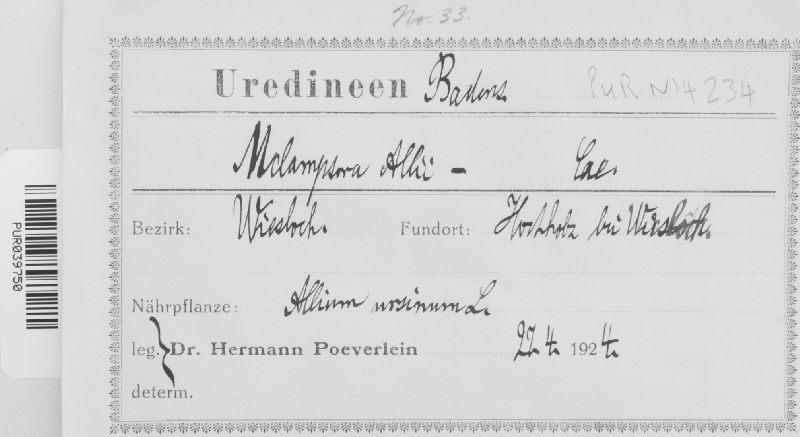 No. 33.
Uredineen Badens. PUR N14234
Melampsora Allii – Cae.
Bezirk: Wiesloch. Fundort: Hochholz bei Wiesloch.
Nährpflanze: Allium ursinum L.
leg. Dr. Hermann Poeverlein 22. 4. 1924.
determ.
PUR039750